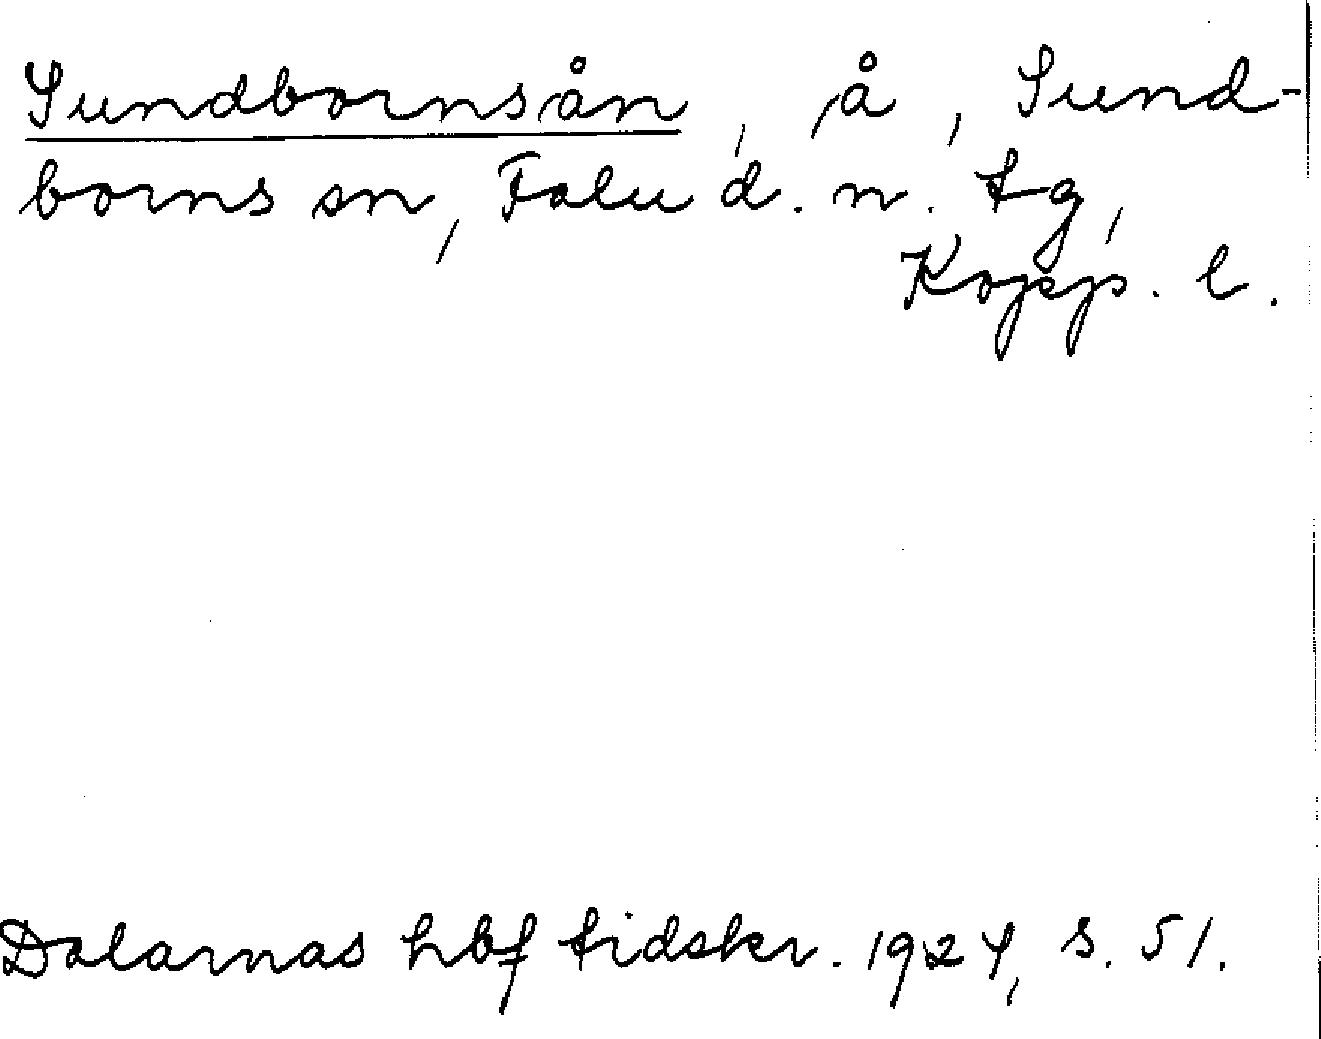 Sundbornsån, å, Sund-
borns sn, Falu d. n. tg,
Kopp. l.
Dalarnas hbf tidskr. 1924, s. 51.